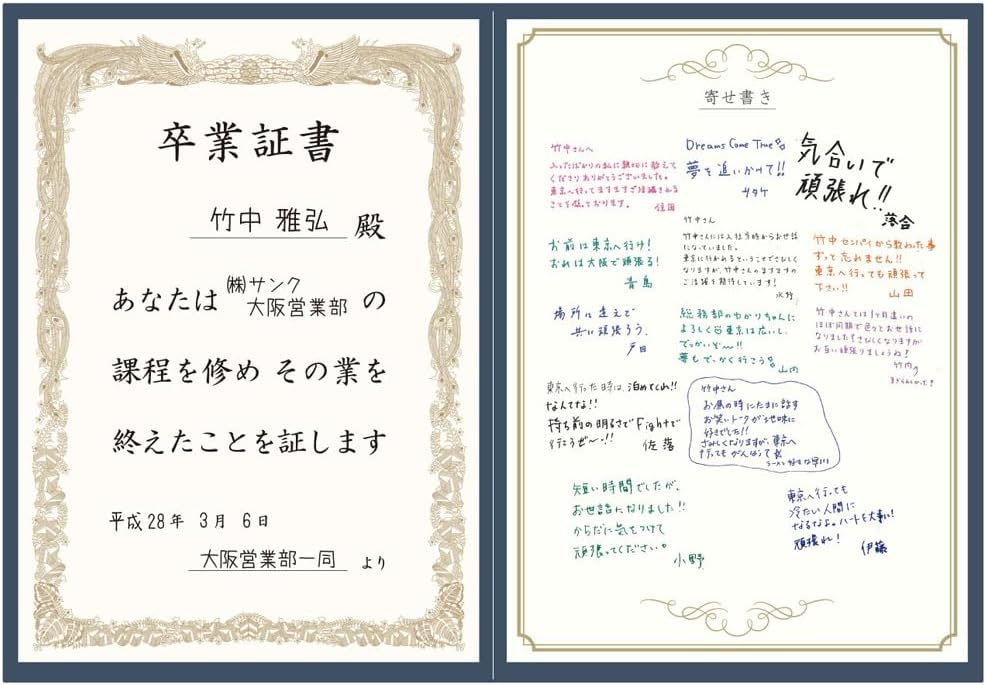 卒業証書
竹中 雅弘 殿
あなたは ㈱サンク
大阪営業部 の
課程を修め その業を
終えたことを証します
平成28年 3月 6日
大阪営業部一同 より
寄せ書き
竹中さんへ
入ったばかりの私に親切に教えて
くださりありがとうございました。
東京へ行ってますますご活躍される
ことを願っております。
Dreams Come True
夢を追いかけて!!
サタケ
気合いで
頑張れ!!
落合
お前は東京へ行け!
おれは大阪で頑張る!
青島
竹中さん
竹中さんには入社当時からお世話
になっていました。
東京に行かれるということでさびしく
なりますが、竹中さんのますますの
ご活躍を期待しています!
水野
竹中センパイから教わった事
ずっと忘れません!!
東京へ行っても頑張って
下さい!!
山田
場所は違えど
共に頑張ろう。
戸田
総務部のゆかりちゃんに
よろしく 東京は広いし、
でっかいぞ〜!!
夢もでっかく行こう
山内
竹中さんとは1ヶ月違いの
ほぼ同期で色々とお世話に
なりました。さびしくなりますが
お互い頑張りましょうね!
竹内
東京へ行った時は、泊めてくれ!!
なんてな!!
持ち前の明るさでFightで
行こうぜ〜!!
佐落
竹中さん
お昼の時にたまに話す
お笑いトークが地味に
好きでした!!
さみしくなりますが、東京へ
行っても がんばって
短い時間でしたが、
お世話になりました!!
からだに気をつけて
頑張ってください。
小野
東京へ行っても
冷たい人間に
なるなよ。ハートを大事に!
頑張れ!
伊藤